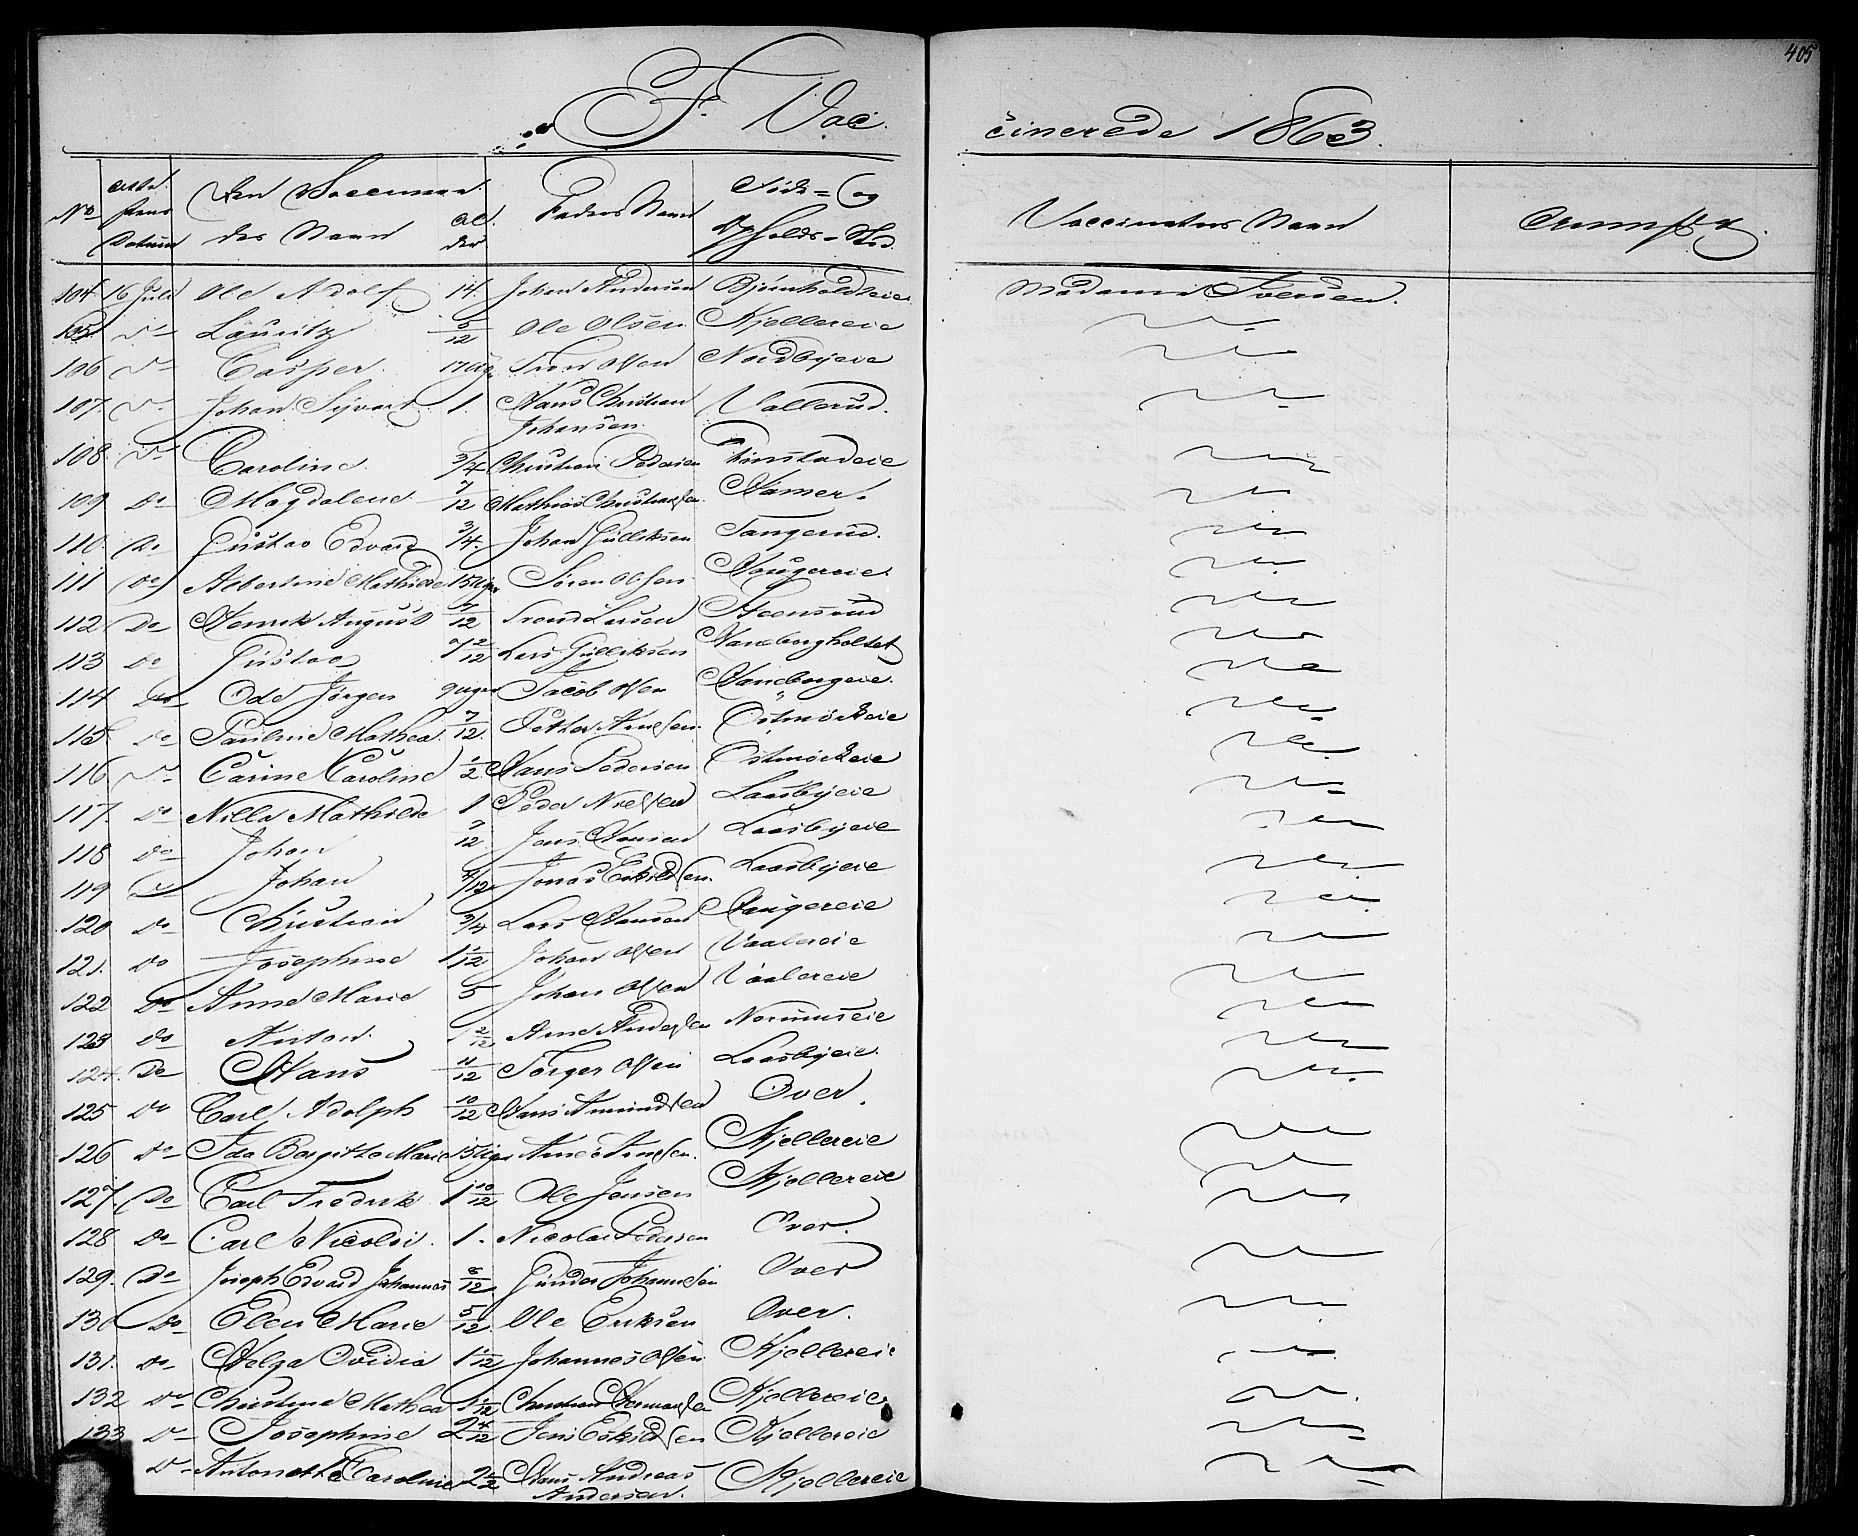 405
F. Vac cinerede 1863.
No Datum Den Vaccine
des Navn Al der Faders Navn Føde= og
Opholds=Sted. Vaccinateurs Navn
104 16 Juli Ole Adolf 14. Johan Andersen Bjørnholdteie Madame Iversen.
105 Do Lauritz 5/12 Ole Olsen Kjellereie
106 Do Casper. 17 Uger Tron Olsen Nordbyeie
107. Do Johan Sijvart 1. Hans Christian Johansen Vallerud.
108 Do Caroline 3/4 Christian Pedersen Finstadeie
109 Do Magdalene 7/12 Mathias Christiansen Hamer.
110 Do Gustav Edvard 3/4. Johan Gulliksen Tangerud.
111 Do Albertine Mathilde 15 Uger Søren Olsen Haugereie
112 Do Henrik August 7/12 Trond Larsen Steensrud
113 Do Gustav Lars Gulliksen Haneborgholtet
114 Do Ole Jørgen 9 uger Jacob Olsen Haneborgeie.
115 Do Pauline Mathea. 7/12. Petter Arnesen. Østmorkeie
116 Do Carine Caroline 1/2 Hans Pedersen Østmorkeie
117. Do Nilla Mathilde 1 Peder Nielsen Laasbyeie
118 Do Johan 7/12 Jens Hansen Laasbyeie
119 Do Johan 4/12 Jonas Eskildsen. Laasbyeie
120 Do Christian 3/4 Lars Hansen Haugereie
121. Do Josephine 1 1/12 Johan Olsen Vaalereie
122 Do Anne Marie 5 Johan Olsen Vaalereie
123 Do Anton. 1 2/12 Arne Andersen Nordmuseie
124. Do Hans 11/12 Torger Olsen Laasbyeie.
125 Do Carl Adolph 10/12 Hans Amundsen Øver.
126 Do Ida Bergitte Marie 15 Uger Arne Arnesen. Kjellereie
127. Do Carl Fredrik 1 10/12 Ole Jensen Kjellereie
128 Do Carl Nicolai. 1. Nicolai Pedersen Øver.
129. Do Joseph Edvard Johannes 8/12. Gunder Johannesen Øver
130 Do Elen Marie 5/12. Ole Eriksen Øver.
131. Do Helga Ovidia 1 1/12 Johannes Olsen Kjellereie
132 Do Christine Mathea 1 1/12 Christian Hermansen Kjellereie
133 Do Josephine 2 4/12 Jens Eskildsen Kjellereie
Do Antonette Caroline 2 1/2 Hans Andreas Andersen. Kjellereie